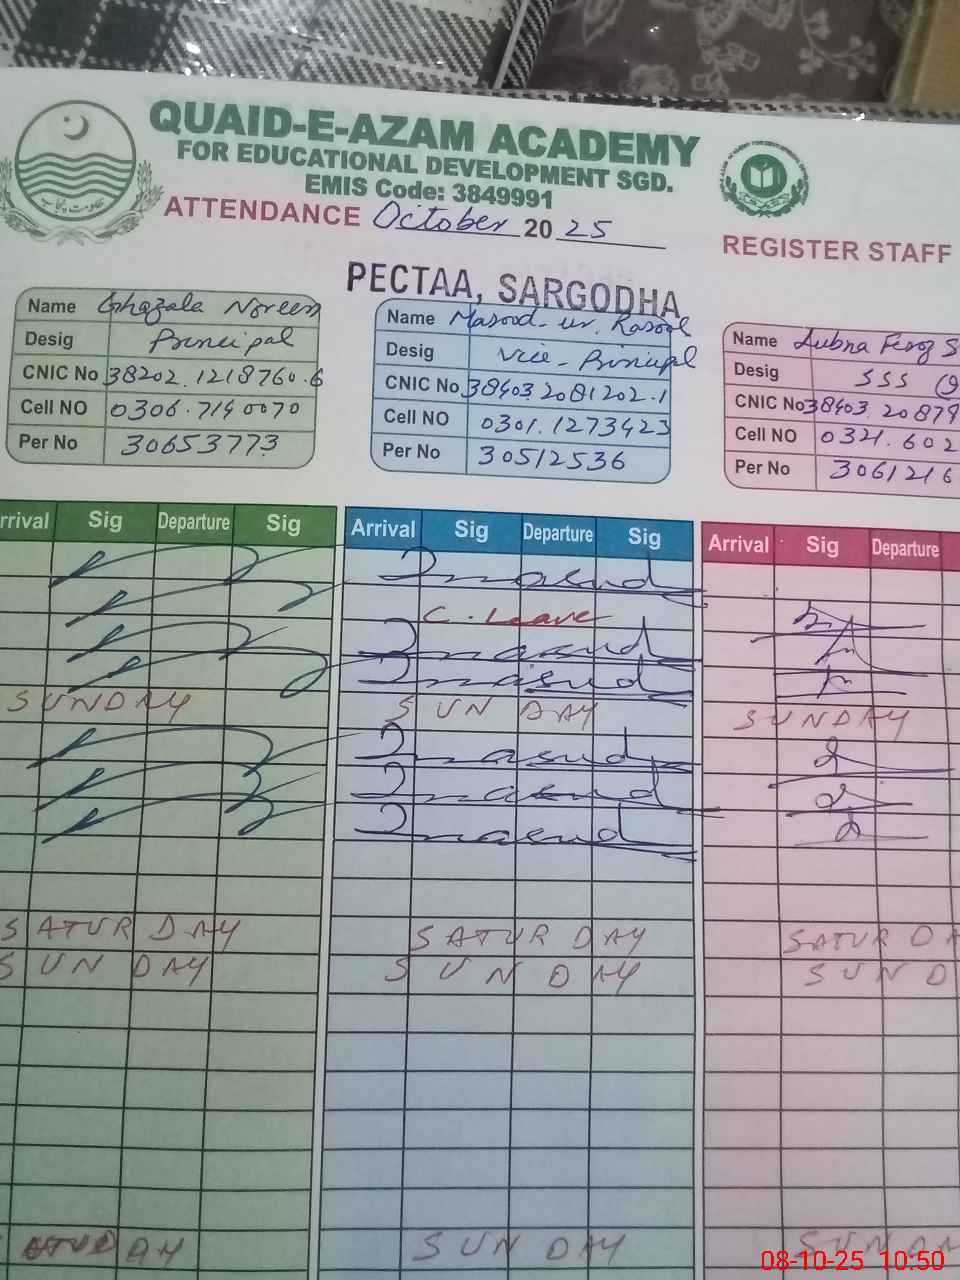 QUAID-E-AZAM ACADEMY
FOR EDUCATIONAL DEVELOPMENT SGD.
EMIS Code: 3849991
حکومت پنجاب
ATTENDANCE October 2025
REGISTER STAFF
PECTAA, SARGODHA
Name Ghazala Noreen
Desig Principal
CNIC No 38202.1218760.6
Cell NO 0306.7140070
Per No 30653773
Name Masood-ur-Rasool
Desig Vice-Principal
CNIC No 38403.2081202.1
Cell NO 0301.1273423
Per No 30512536
Name Lubna Feroz S
Desig SSS
CNIC No 38403.20879
Cell NO 0321.602
Per No 3061216
rrival Sig Departure Sig
Arrival Sig Departure Sig
Arrival Sig Departure
C. Leave
SUNDAY SUNDAY SUNDAY
SATURDAY SATURDAY SATURDA
SUNDAY SUNDAY SUND
SUNDAY SUNDA
08-10-25 10:50